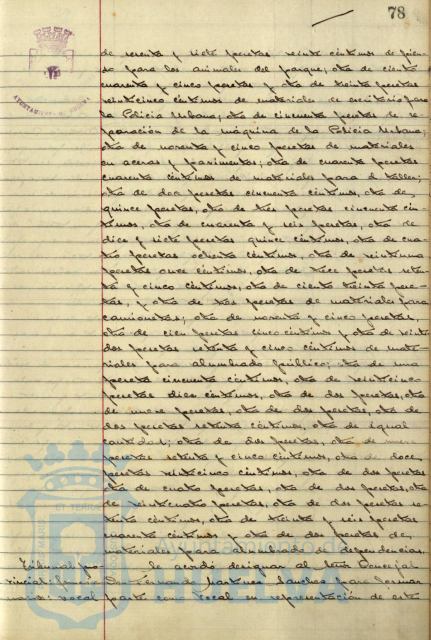 78
AYUNTAMIENTO
de sesenta y siete pesetas veinte céntimos de pien-
so para los animales del parque; otra de ciento
cuarenta y cinco pesetas y otra de treinta pesetas
veinticinco céntimos de material de escritorio para
la Policía Urbana; otra de cincuenta pesetas de re-
paración de la máquina de la Policía Urbana;
otra de noventa y cinco pesetas de materiales
en aceras y pavimentos; otra de cuarenta pesetas
cuarenta céntimos de materiales para el taller;
otra de dos pesetas cincuenta céntimos, otra de
quince pesetas, otra de tres pesetas cincuenta cén-
timos, otra de cuarenta y seis pesetas, otra de
diez y siete pesetas quince céntimos, otra de cua-
tro pesetas ochenta céntimos, otra de veintiuna
pesetas once céntimos, otra de trece pesetas seten-
ta y cinco céntimos, otra de ciento treinta pese-
tas, y otra de tres pesetas de materiales para
camionetas; otra de noventa y cinco pesetas,
otra de cien pesetas cinco céntimos y otra de veinte
dos pesetas setenta y cinco céntimos de mate-
riales para alumbrado público; otra de una
peseta cincuenta céntimos, otra de veinticinco
pesetas diez céntimos, otra de dos pesetas, otra
de nueve pesetas, otra de dos pesetas, otra de
dos pesetas setenta céntimos, otra de igual
cantidad; otra de dos pesetas, otra de nueve
pesetas setenta y cinco céntimos, otra de doce
pesetas veinticinco céntimos, otra de dos pesetas
otra de cuatro pesetas, otra de dos pesetas, otra
de veinticuatro pesetas, otra de dos pesetas se-
tenta céntimos, otra de treinta y seis pesetas
cuarenta céntimos y otra de dos pesetas de
materiales para alumbrado de dependencias.
Tribunal pro-
vincial
vocal
Se acordó designar al Señor Concejal
Don Fernando Martínez Sánchez para formar
parte como vocal en representación de este
Ayuntamiento de
HUELVA